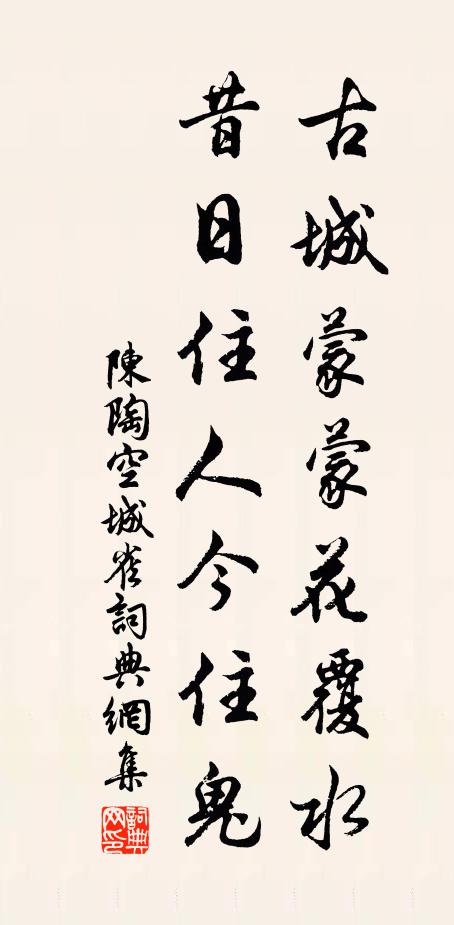 古城蒙蒙花覆水
昔日住人今住鬼
陳陶空城雀詞典網集
詞典網印